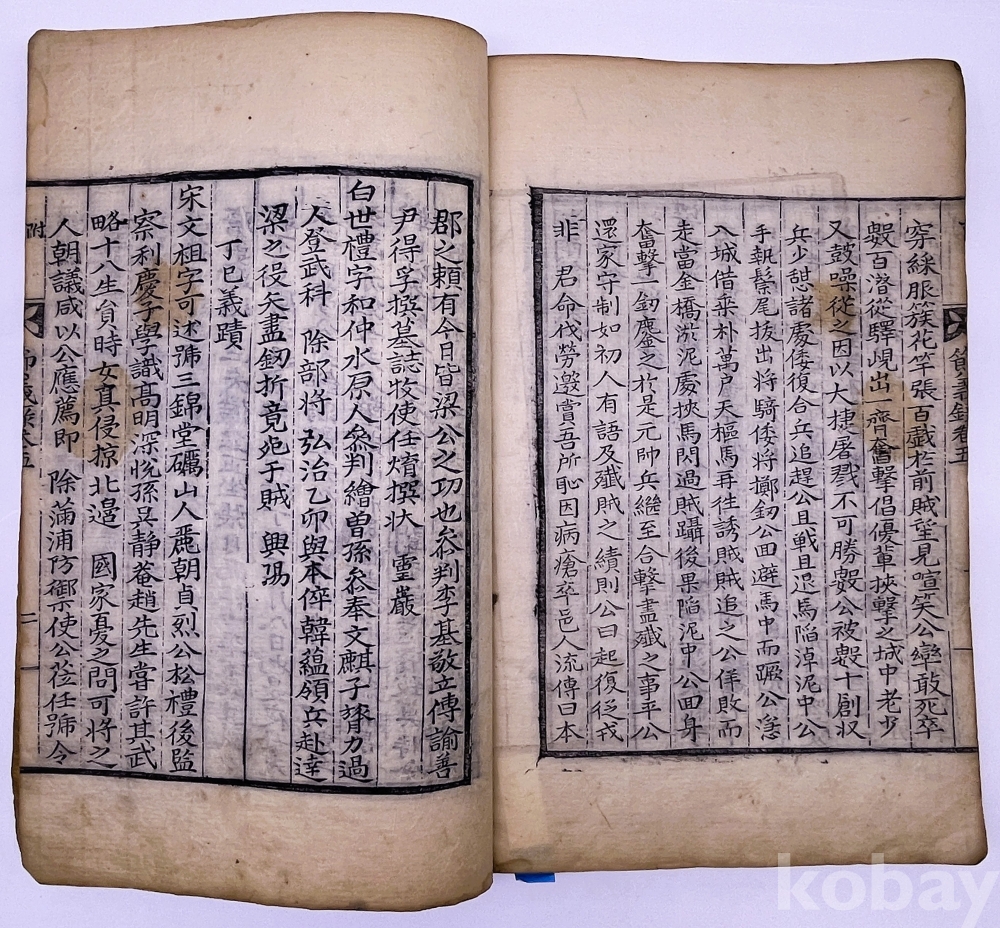 穿綵服簇花竿張百戲於前賊望見喧笑公率敢死卒
數百潛從驛峴出一齊奮擊倡優輩挾擊之城中老少
又鼓噪從之因以大捷屠戮不可勝數公被數十創収
兵少憇諸處倭復合兵追趕公且戰且退馬陷淖泥中公
手執鬃尾拔出將騎倭將擲釰公面避馬中而蹶公急
入城借乘朴萬户天樞馬再往誘賊賊追之公佯敗而
走當金橋淤泥處挾馬閃過賊躡後果陷泥中公回身
奮擊一釰鏖之於是元帥兵繼至合擊盡殲之事平公
還家守制如初人有語及殲賊之績則公曰起復從戎
非 君命伐勞邀賞吾所恥因病瘡卒邑人流傳曰本
節義錄卷五
郡之賴有今日皆梁公之功也叅判李基敬立傳諭善
尹得孚撰墓誌牧使任焴撰狀 靈巖
白世禮字和仲水原人叅判繪曾孫叅奉文麒子膂力過
人登武科 除部將 弘治乙卯與本倅韓蘊領兵赴達
梁之役矢盡釰折竟死于賊 興陽
丁巳義蹟
宋文祖字可述號三錦堂礪山人麗朝貞烈公松禮後監
察利慶子學識高明深悅孫吳靜菴趙先生嘗許其武
略十八生負時 女真侵掠北邉 國家憂之問可將之
人朝議咸以公應薦即 除蒲浦防禦使公莅任號令
附
五
二
kobay